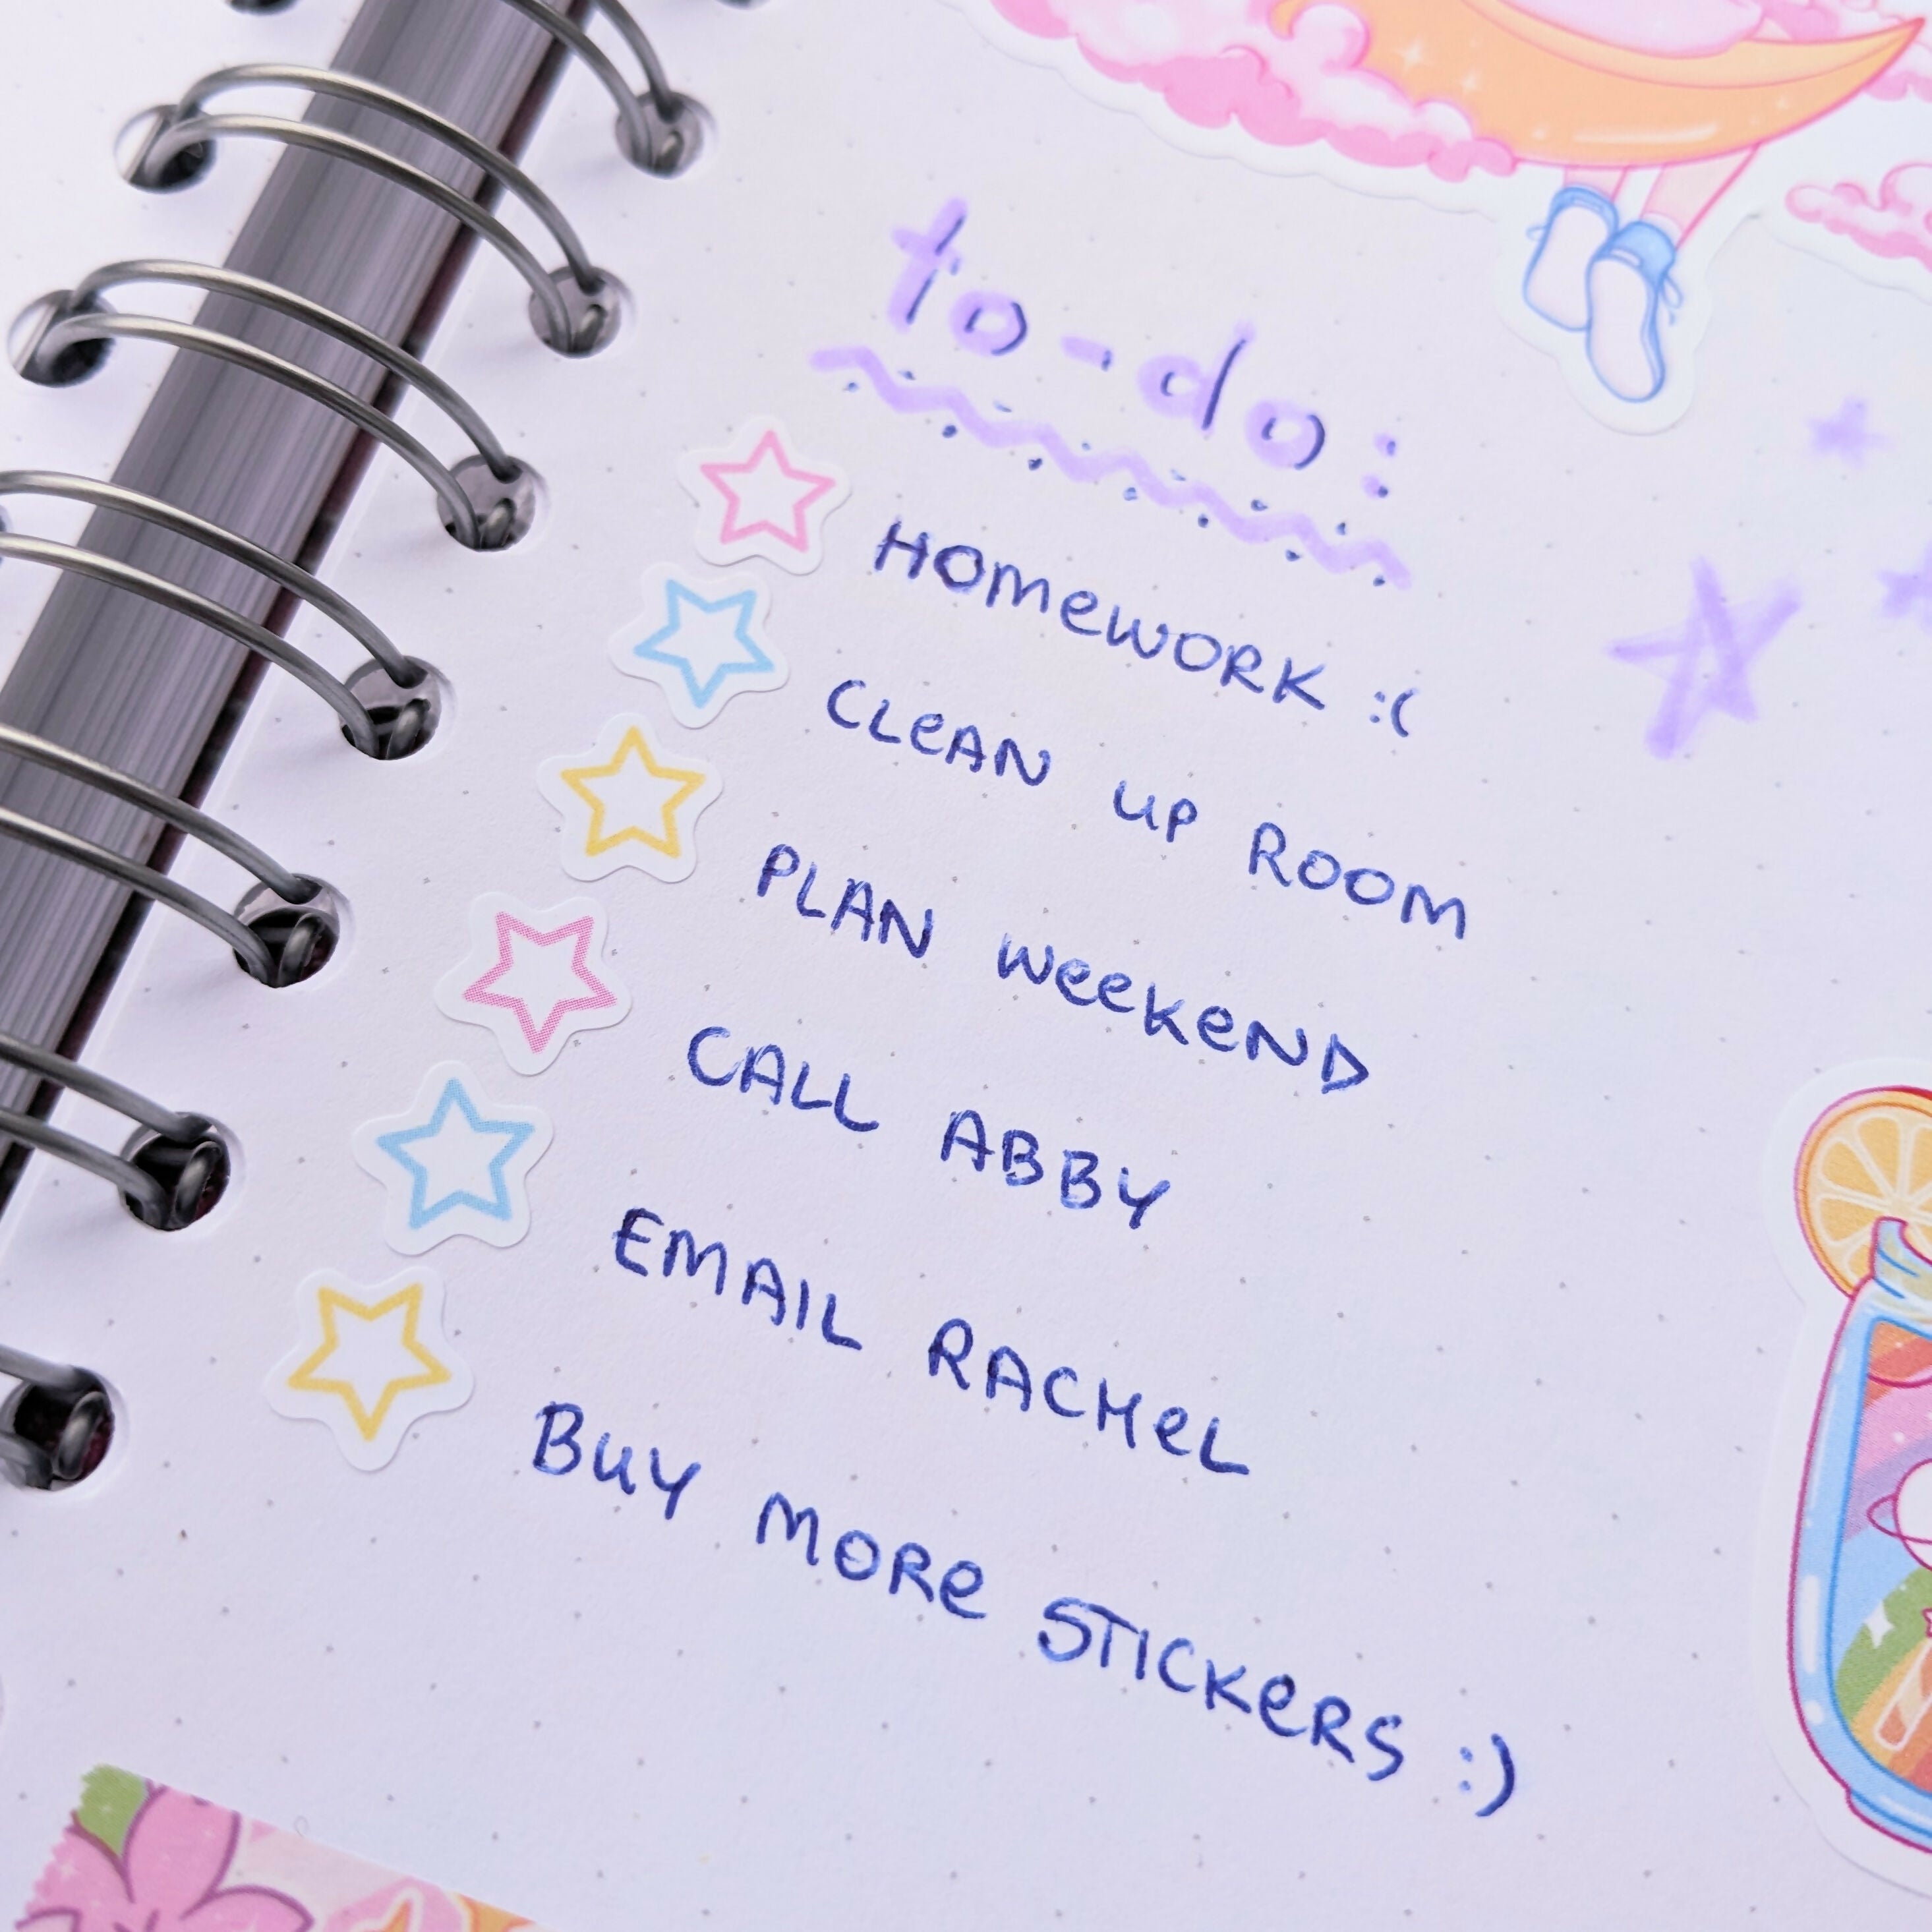 to-do:
HOMEWORK :(
CLEAN UP ROOM
PLAN WEEKEND
CALL ABBY
EMAIL RACHEL
BUY MORE STICKERS :)